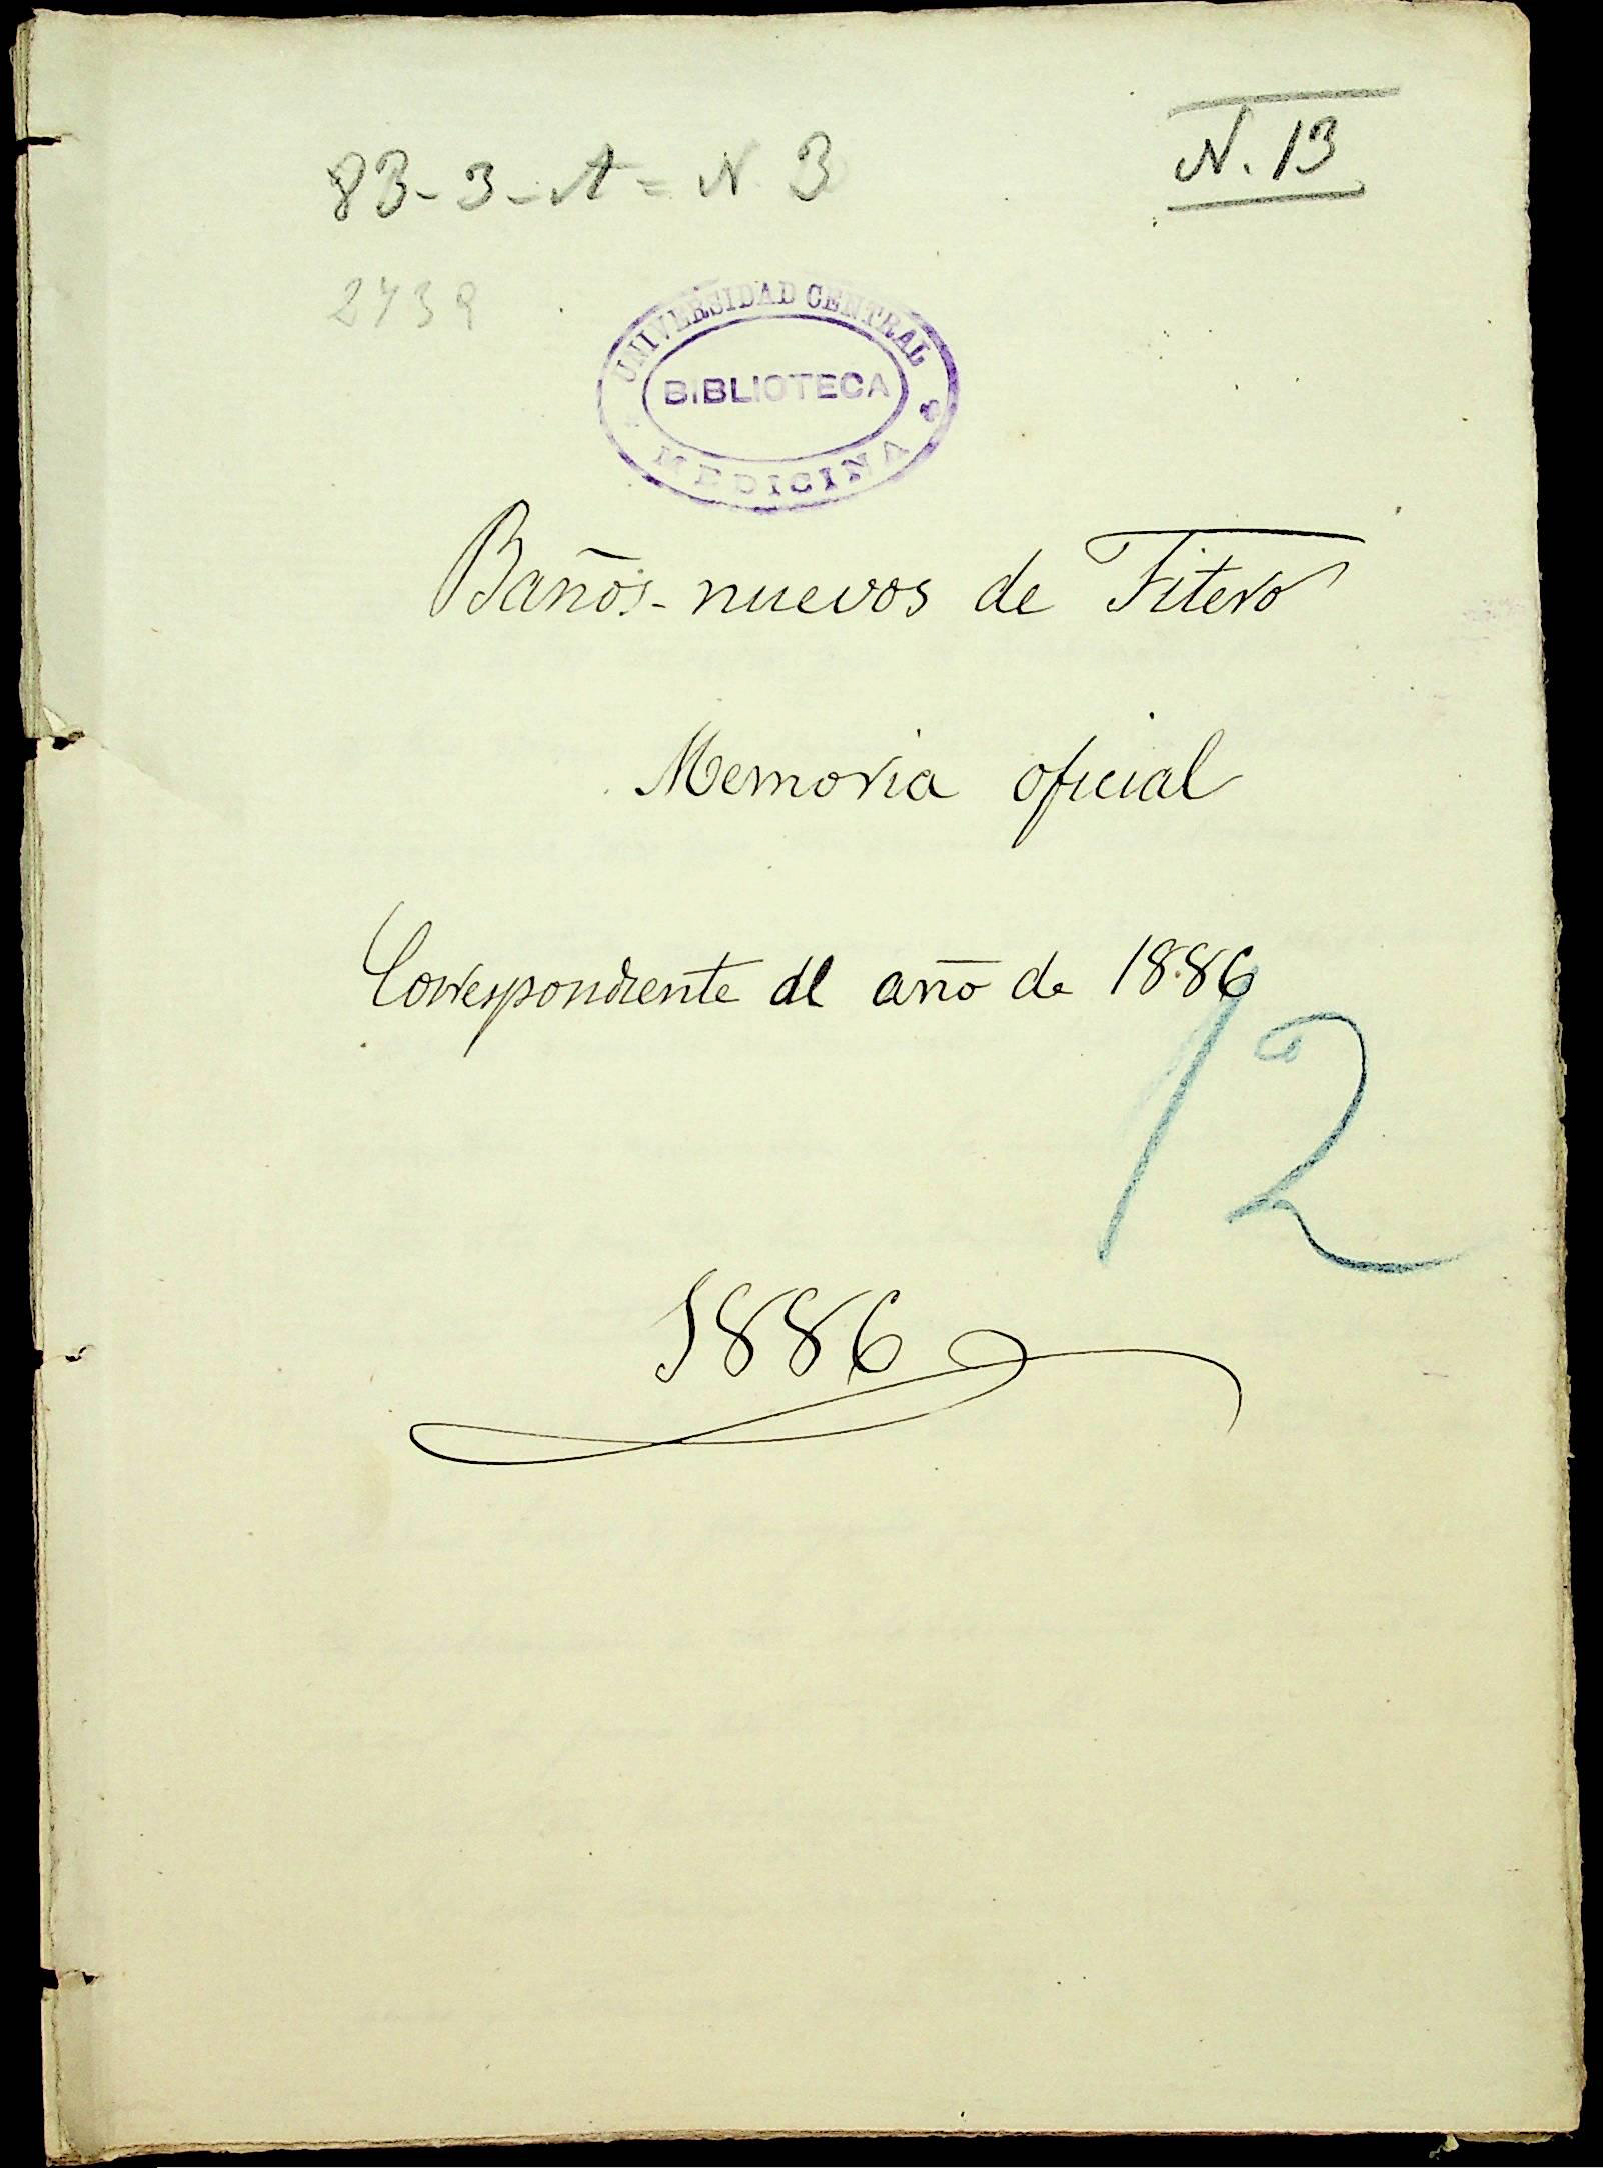 83-3-A=N. 3
N. 13
2439
UNIVERSIDAD CENTRAL
BIBLIOTECA
MEDICINA
Baños-nuevos de Fitero
Memoria oficial
Correspondiente al año de 1886
12
1886